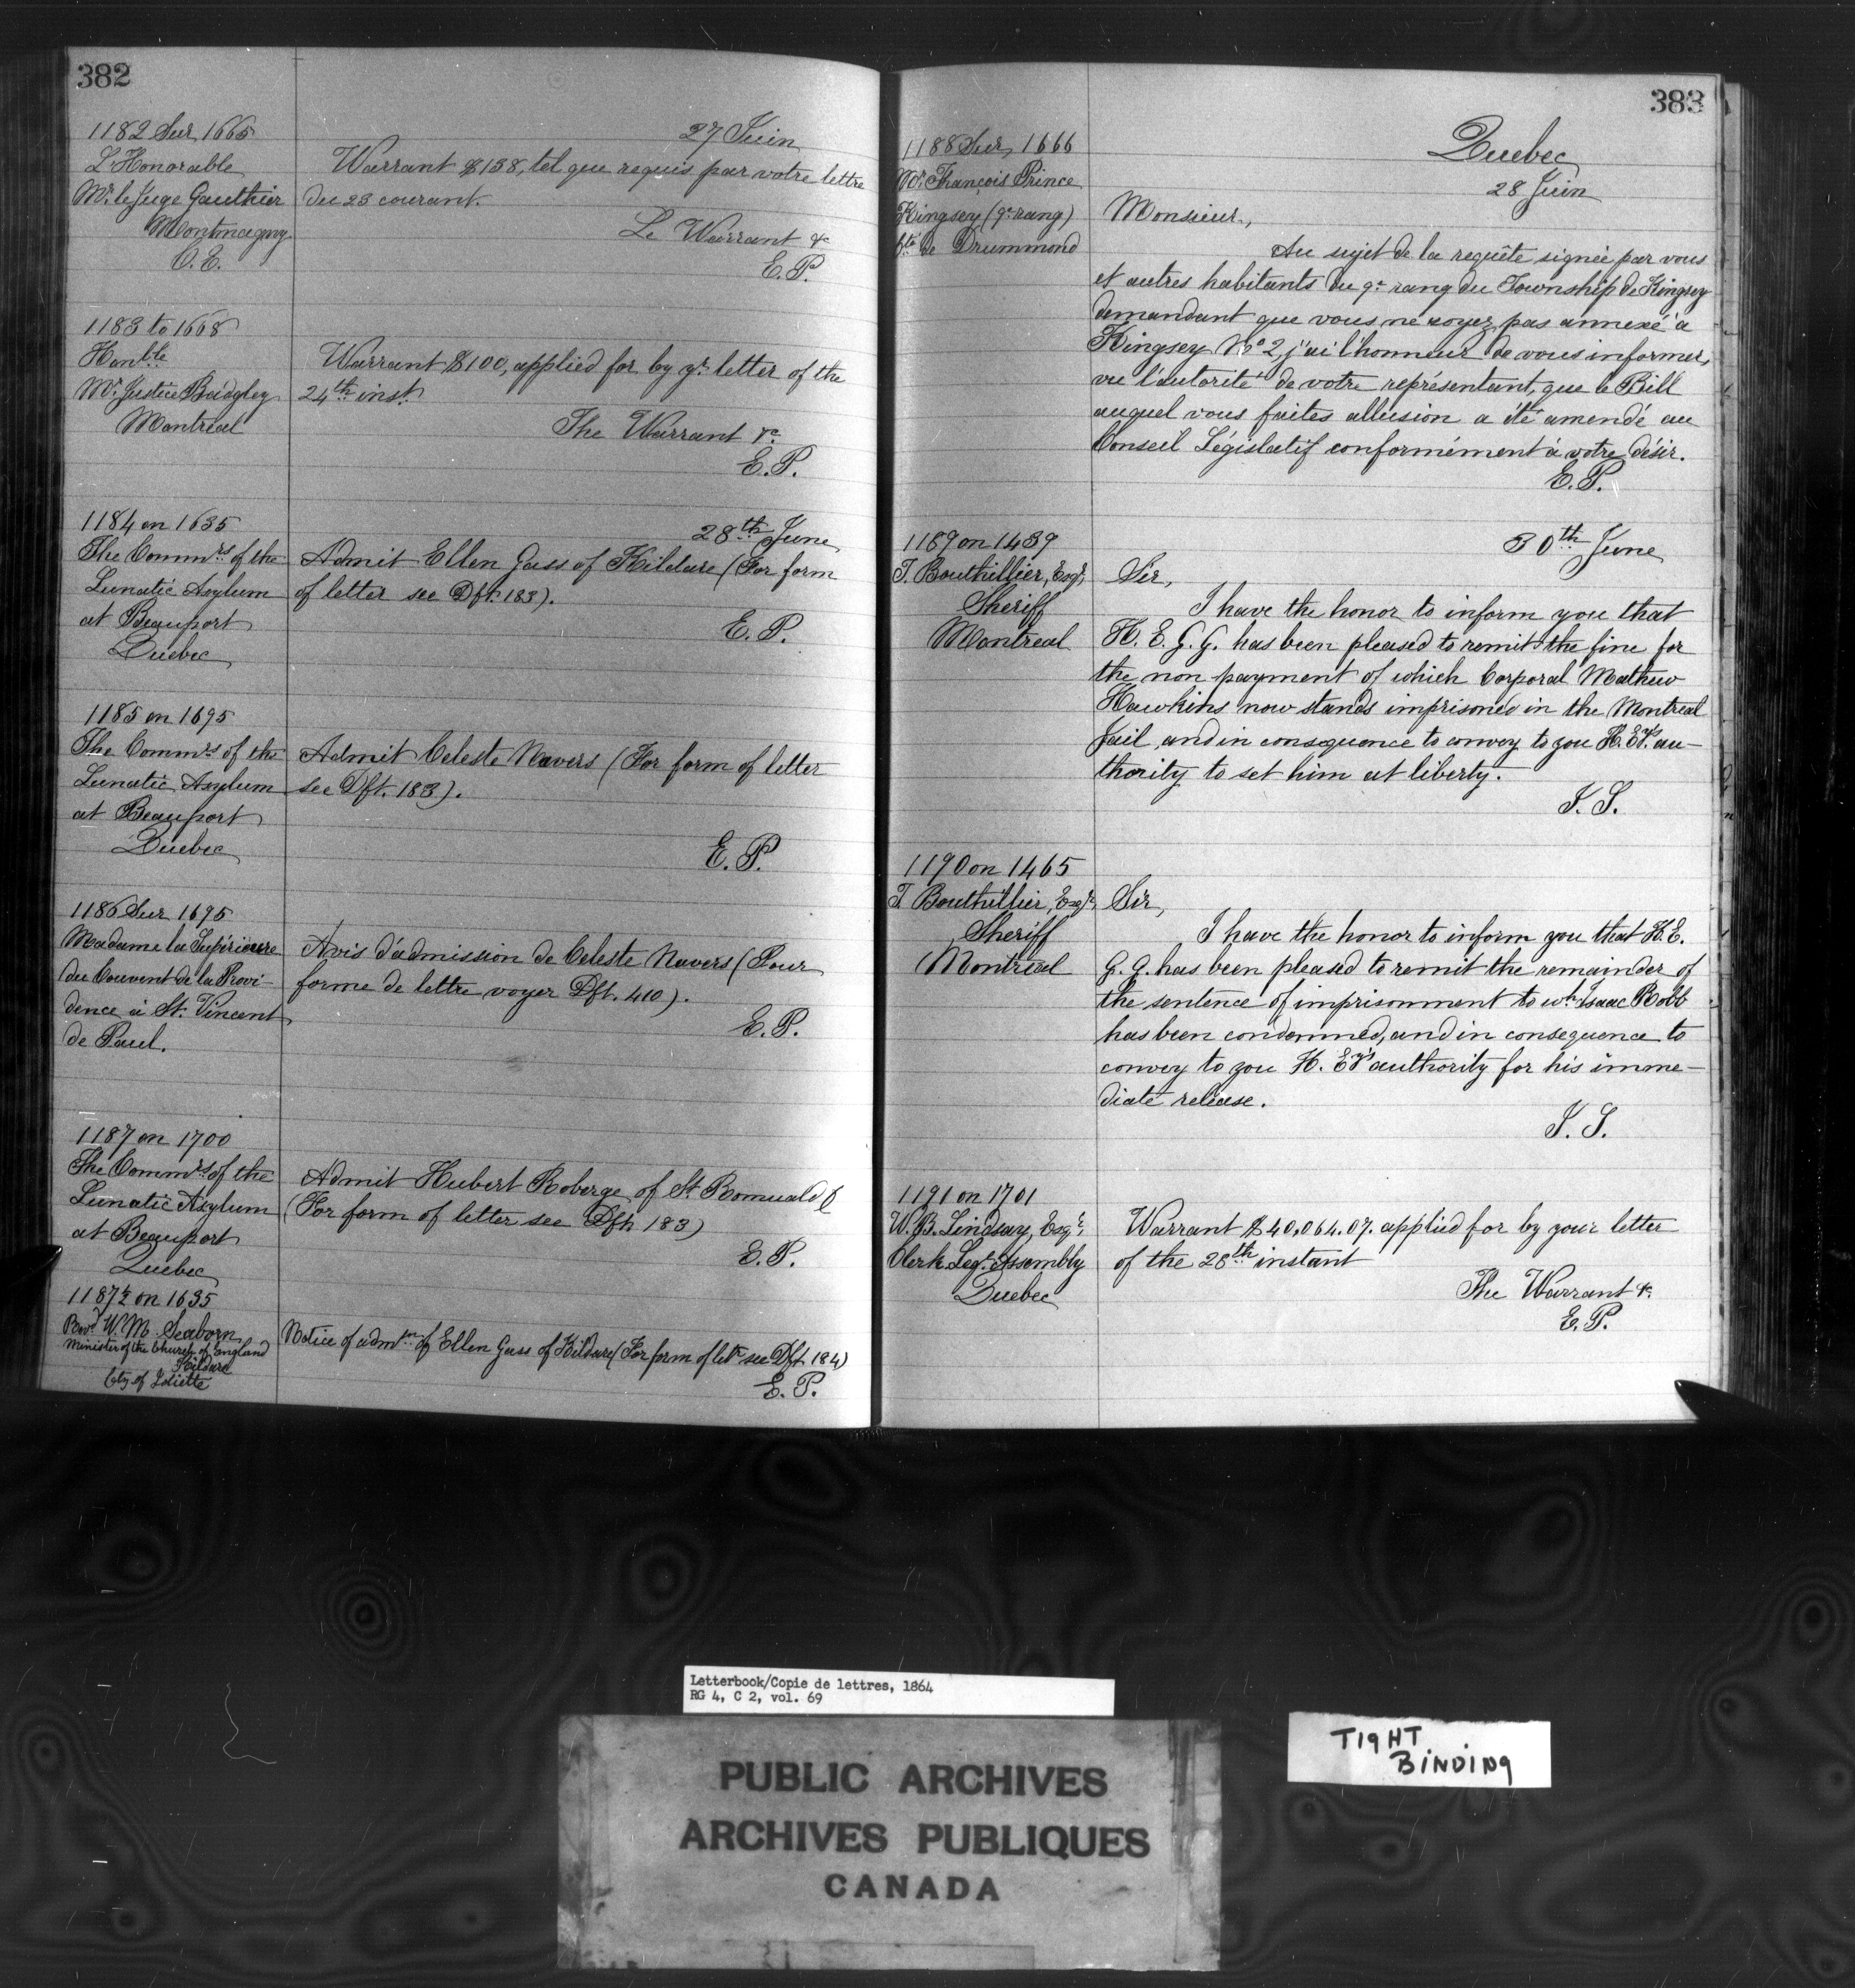 382
1182 Sur 1665
27 Juin
L'Honorable
Mr. le Juge Gauthier
Montmagny
C.E.
Warrant $138, tel que requis par votre lettre
du 23 courant.
Le Warrant &c
E.P.
1183 to 1668
Honble.
Mr. Justice Badgley
Montreal
Warrant $100, applied for by yr. letter of the
24th inst.
The Warrant &c.
E.P.
1184 on 1635
28th June
The Commrs of the
Lunatic Asylum
at Beauport
Quebec
Admit Ellen Gass of Kildare (For form
of letter see Dft. 183).
E.P.
1185 on 1695
The Commrs of the
Lunatic Asylum
at Beauport
Quebec
Admit Celeste Navers (For form of letter
see Dft. 183).
E.P.
1186 Sur 1695
Madame la Supérieure
du Couvent de la Provi-
dence à St. Vincent
de Paul.
Avis d'admission de Celeste Navers (Pour
forme de lettre voyer Dft. 410).
E.P.
1187 on 1700
The Commrs of the
Lunatic Asylum
at Beauport
Quebec
Admit Hubert Roberge of St. Romuald
(For form of letter see Dft. 183)
E.P.
1187½ on 1635
Revd. W.M. Seaborn
Minister of the Church of England
Kildare
Cty of Joliette
Notice of admon of Ellen Gass of Kildare (For form of letr see Dft 184)
E.P.
383
1188 Sur 1666
Mr. François Prince
Kingsey (9e rang)
Cté de Drummond
Quebec
28 Juin
Monsieur,
Au sujet de la requête signée par vous
et autres habitants du 9e rang du Township de Kingsey
demandant que vous ne soyez pas annexé à
Kingsey No 2, j'ai l'honneur de vous informer,
vu l'autorité de votre représentant, que le Bill
auquel vous faites allusion a été amendé au
Conseil Législatif conformément à votre désir.
E.P.
1189 on 1439
30th June
T. Bouthillier, Esqr.
Sheriff
Montreal
Sir,
I have the honor to inform you that
H. E. G. G. has been pleased to remit the fine for
the non payment of which Corporal Mathew
Hawkins now stands imprisoned in the Montreal
Jail, and in consequence to convey to you H. Ey's. au-
thority to set him at liberty.
I. S.
1190 on 1465
T. Bouthillier, Esqr.
Sheriff
Montreal
Sir,
I have the honor to inform you that H. E.
G. G. has been pleased to remit the remainder of
the sentence of imprisonment to wh. Isaac Robb
has been condemned, and in consequence to
convey to you H. Ey's authority for his imme-
diate release.
I. S.
1191 on 1701
W.B. Lindsay, Esqr.
Clerk Legt. Assembly
Quebec
Warrant $40,064.07. applied for by your letter
of the 28th instant
The Warrant &c.
E.P.
Letterbook/Copie de lettres, 1864
RG 4, C 2, vol. 69
PUBLIC ARCHIVES
ARCHIVES PUBLIQUES
CANADA
TIGHT
BINDING